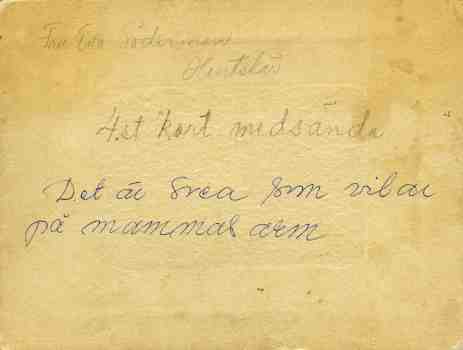 Fru Eva Söderman
4.st kort medsända
Det är Svea som vilar
på mammas arm